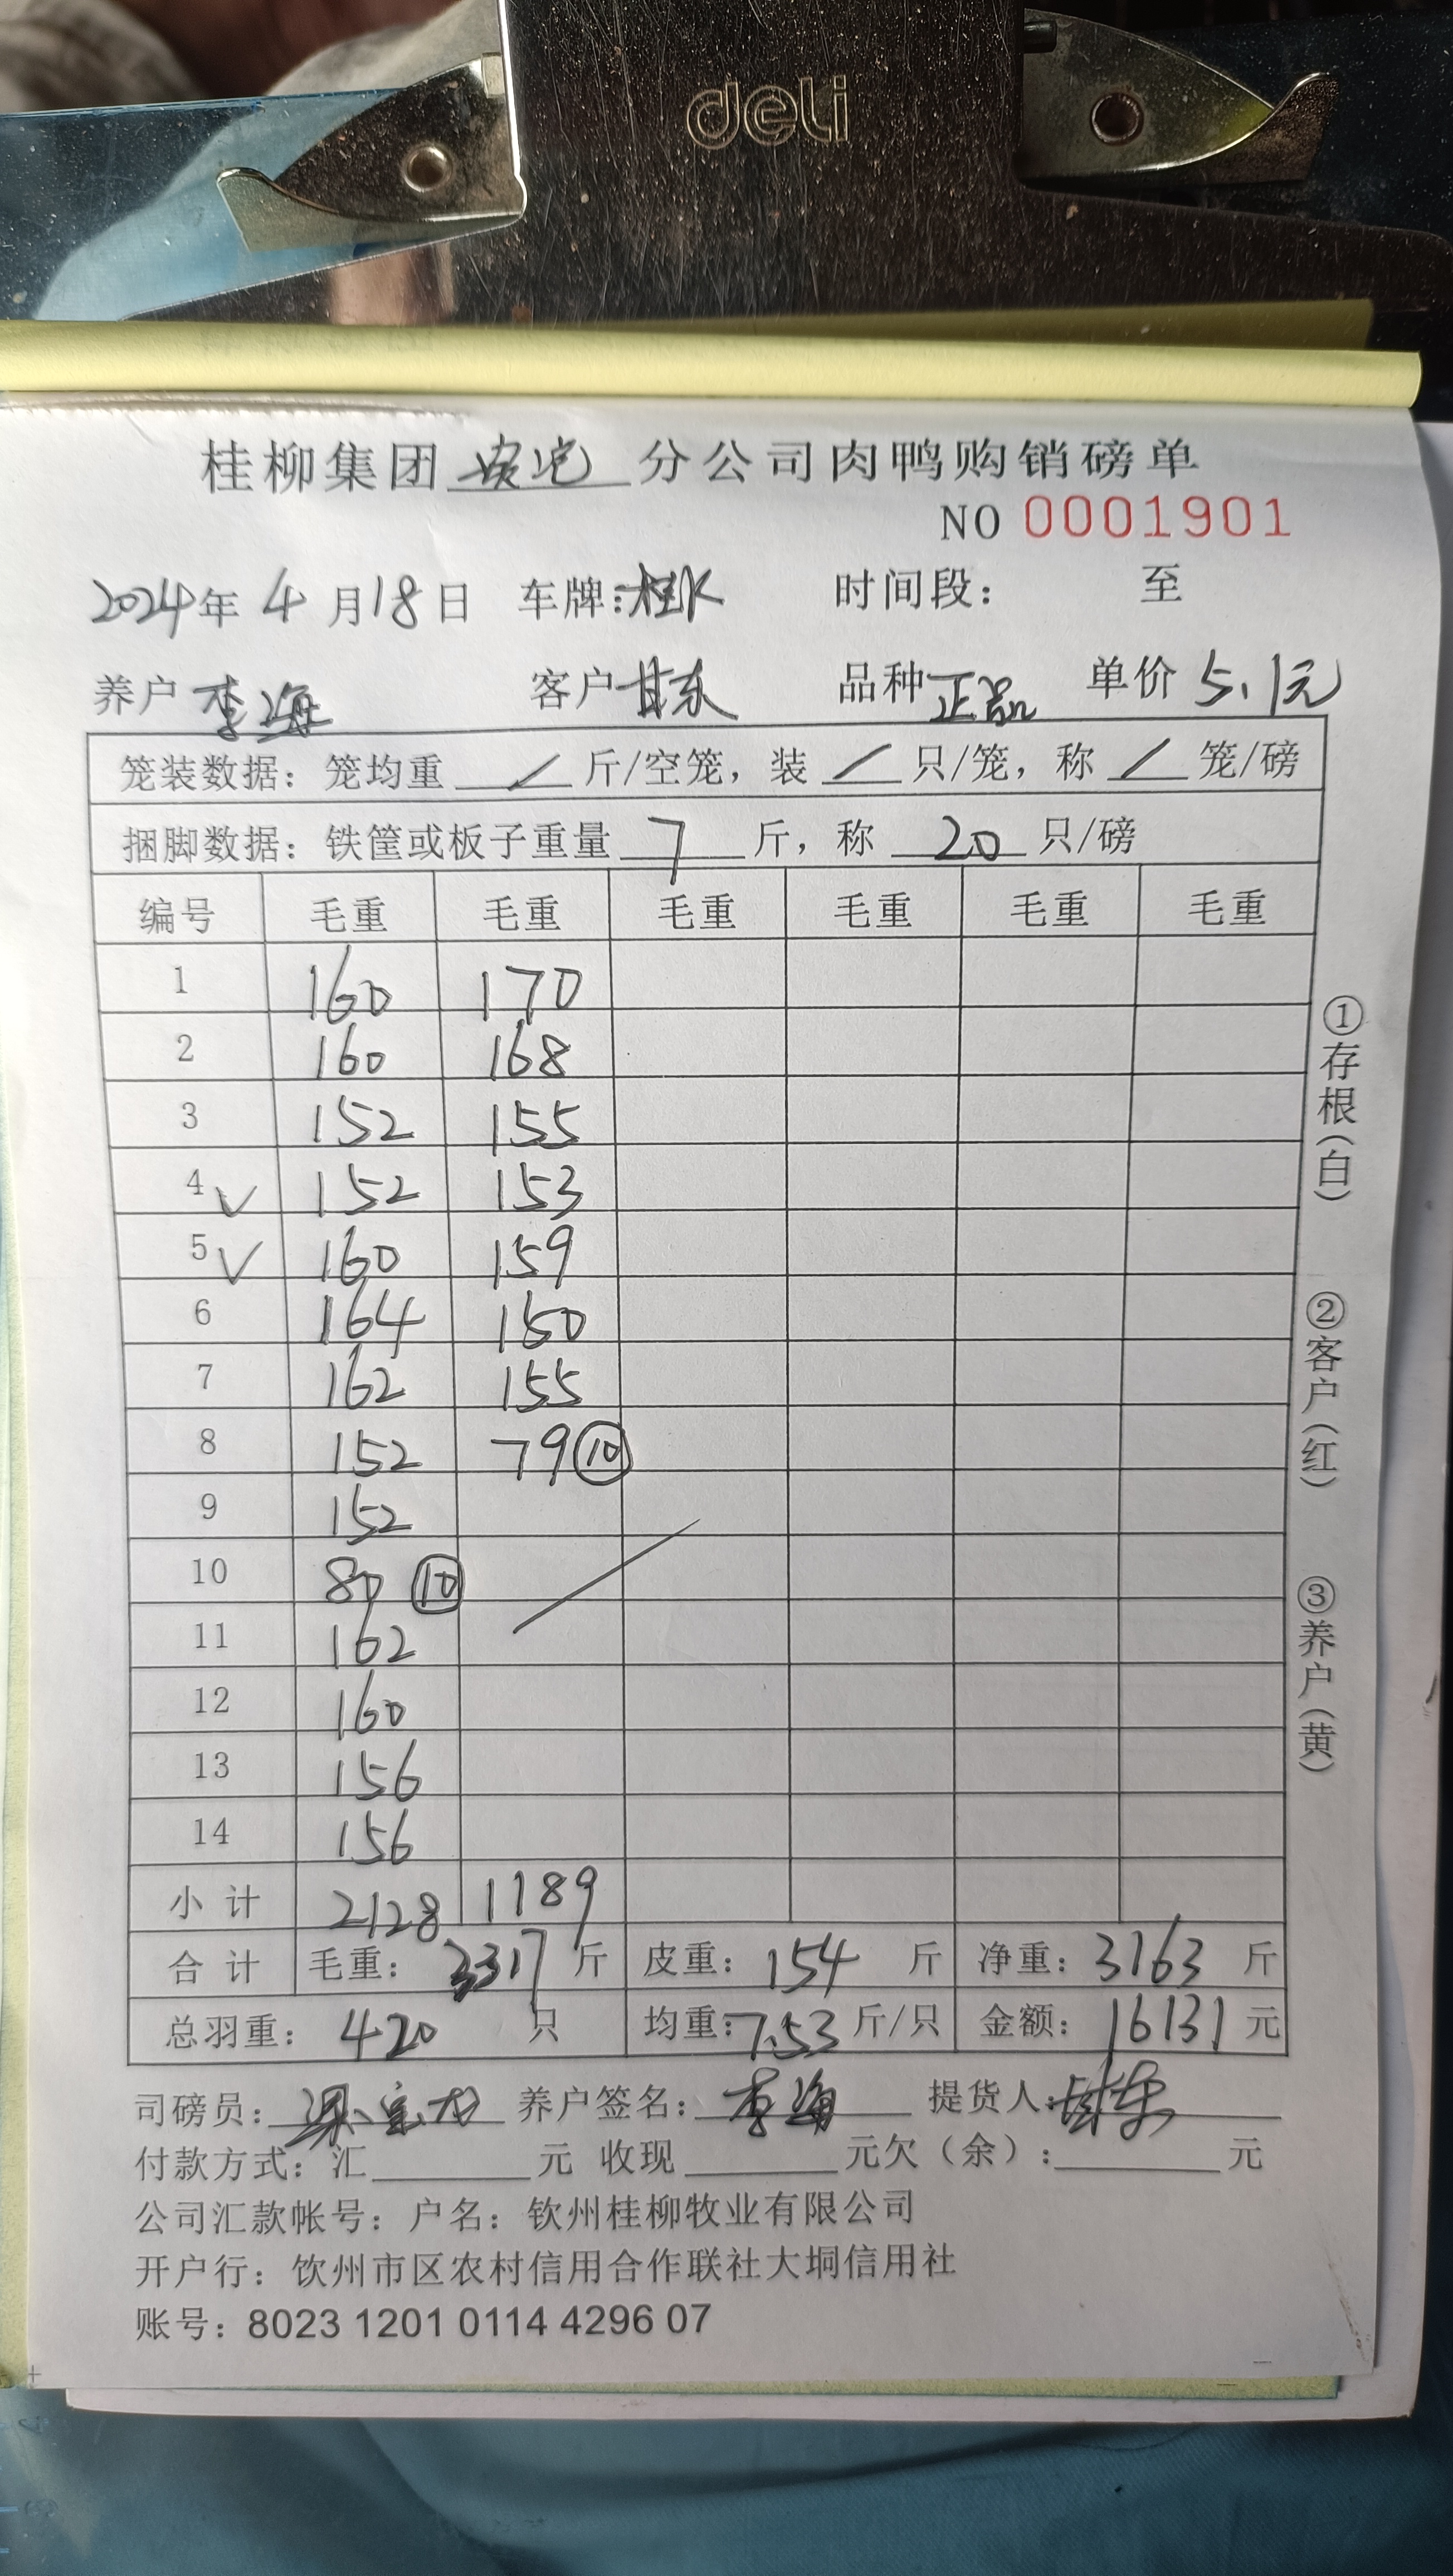 deli
桂柳集团 分公司肉鸭购销磅单
NO 0001901
2024年 4 月 18 日 车牌: 时间段: 至
养户 李海 客户 甘东 品种 正品 单价 5.1元
笼装数据: 笼均重 / 斤/空笼, 装 / 只/笼, 称 / 笼/磅
捆脚数据: 铁筐或板子重量 7 斤, 称 20 只/磅
编号 毛重 毛重 毛重 毛重 毛重 毛重
1 160 170
2 160 168
3 152 155
4 ✓ 152 153
5 ✓ 160 159
6 164 150
7 162 155
8 152 79 ⑩
9 152
10 80 ⑩
11 162
12 160
13 156
14 156
小 计 2128 1189
合 计 毛重: 3317 斤 皮重: 154 斤 净重: 3163 斤
总羽重: 420 只 均重: 7.53 斤/只 金额: 16131 元
司磅员: 养户签名: 李海 提货人:
付款方式: 汇 元 收现 元欠(余): 元
公司汇款帐号: 户名: 钦州桂柳牧业有限公司
开户行: 饮州市区农村信用合作联社大垌信用社
账号: 8023 1201 0114 4296 07
①存根(白)
②客户(红)
③养户(黄)